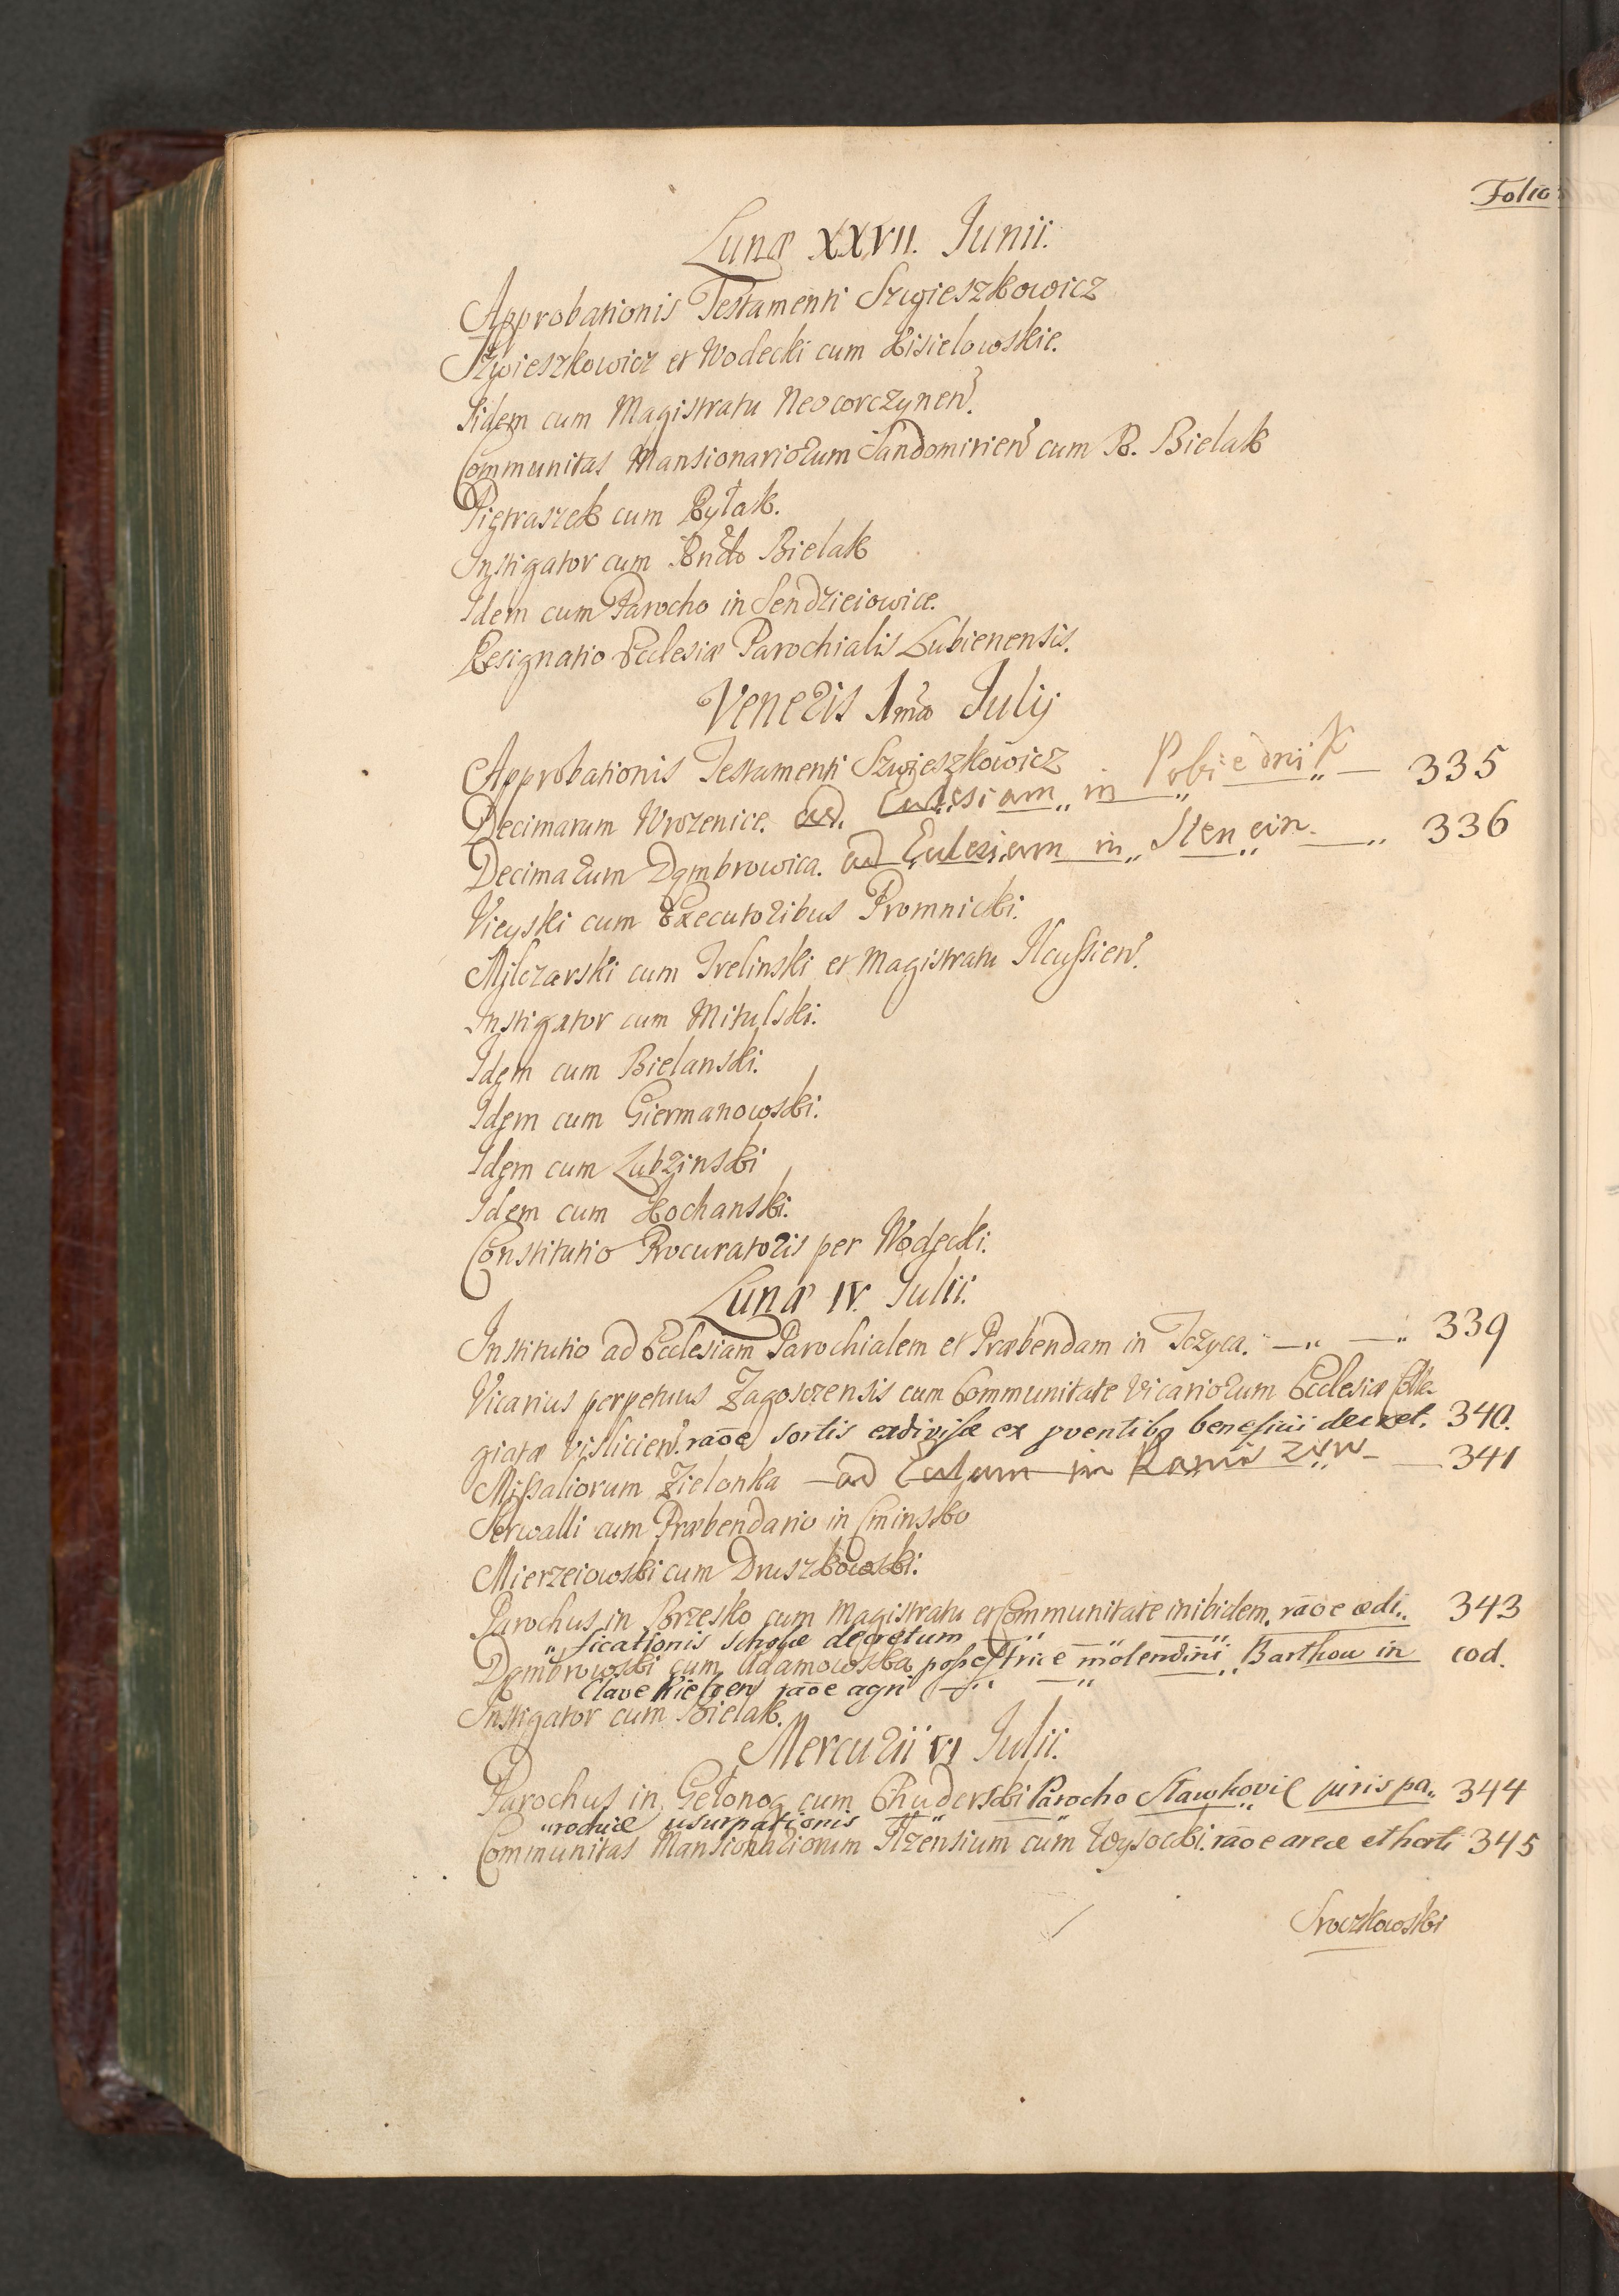 Folio
Lunæ XXVII. Junii.
Approbationis Testamenti Szwieszkowicz
Szwieszkowicz et Wodecki cum Kisielowskie.
Iidem cum Magistratu Neocorczynen.
Communitas Mansionariorum Sandomirien cum R. Bielak
Pietraszek cum Rylak.
Instigator cum Rndo Bielak
Idem cum Parocho in Sendzieiowice.
Resignatio Ecclesiæ Parochialis Lubienensis.
Veneris 1ma Julij
Approbationis Testamenti Szwieszkowicz
Decimarum Wrozenice. ad Ecclesiam in Pobiednik — 335
Decimarum Dąmbrowica. ad Eclesiam in — 336
Vieyski cum Executoribus Promnicki.
Milczarski cum Irelinski et Magistratu Ilcussien.
Instigator cum Mitulski.
Idem cum Bielanski.
Idem cum Giermanowski.
Idem cum Lubzinski
Idem cum Kochanski.
Constitutio Procuratoris per Wodecki.
Lunæ IV. Julii.
Institutio ad Ecclesiam Parochialem et Præbendam in Tczyca. — — 339
Vicarius perpetuus Zagoscensis cum Communitate Vicariorum Ecclesiæ Colle
giatæ Vislicien. raõe sortis ex pventibq beneficii decret. 340.
Missaliorum Zielonka — ad in — 341
Serwalli cum Præbendario in Cminsko
Mierzeiowski cum Druszkowski.
Parochus in Brzesko cum Magistratu et Communitate inibidem. raõe ædi„ 343
„ficationis scholæ decretum — —
Dąmbrowski cum Adamowska possestrice molendini Barthou in eod.
Clave Kielcen raõe agri — —
Instigator cum Bielak.
Mercurii VI Julii.
Parochus in Gołonog cum Chuderski Parocho Sławkovie juris pa„ 344
„rochiæ usurpationis — —
Communitas Mansionariorum Ilzensium cum Wysocki. raõe areæ et horti 345
Sroczkowski